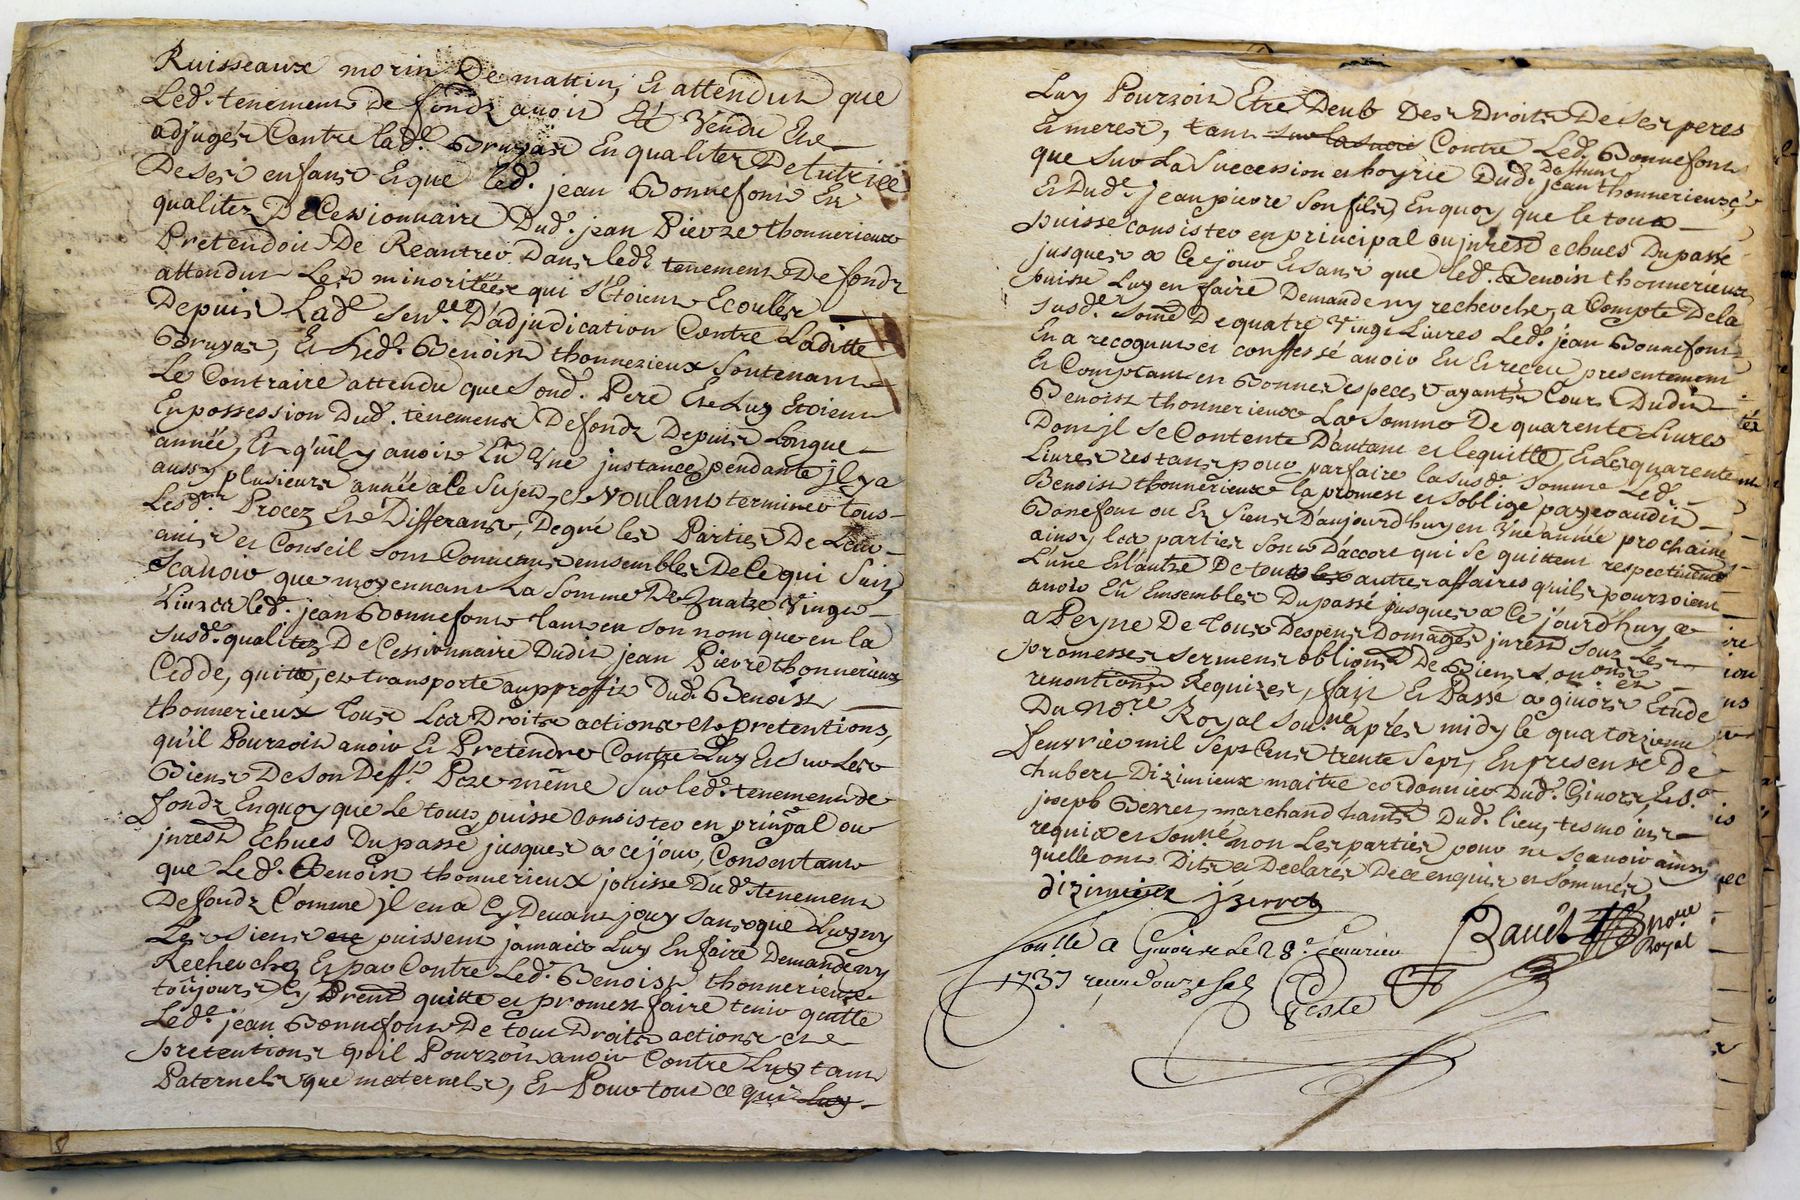 Ruisseaux morin De mattin, Et attendut que
Led.t tenement de fondz avoit Eté Vendu Et
adjugér Contre lad.e Bruyas En qualitez De tutrice
De Ses enfans Et que led. jean Bonnefont En
qualitez De Cessionnaire Dud. jean Pierre thonnerieux
Pretendoit De Reantrer Dans led.t tenement De fondz
attendut Les minoritées qui S'Etoient Ecoulér
Depuis Lad.e Sen.ce D'adjudication Contre Laditte
Bruyas, Et Led. Benoist thonnerieux Soutenant
Le Contraire attendu que Sond. Pere Et Luy Etoient
En possession Dud. tenement De fondz Depuis Longue
année, Et qu'il y avoit Eû Vne jnstance pendante jl y a
aussy plusieurs année a Ce Sujet, et voulant terminer tous
Lesd.ts Procez Et Differans, De gré les Parties De Leur
avis et Conseil Sont Convenus emsembles De Ce qui Suit
Scavoir que moyennant La Somme De Quatre Vingt
Livres led. jean Bonnefont tant en Son nom que en la
Susd.e qualitez De Cessionnaire Dudit jean Pierre thonnerieux
Cedde, quitte, et transporte au proffit Dud. Benoist
thonnerieux Tous Les Droits actions et pretentions,
qu'il Pourroit avoir Et Pretendre Contre Luy Et Sur Les
Biens De Son Deff.t Pere même Sur led. tenement de
fondz En quoy que Le tout puisse Consister en prinpal ou
jnrest Echues Du passé jusques a ce jour, Consentant
que Led. Benoist thonnerieux jouisse Dud. tenement
De fondz Comme jl en a Cy Devant jouy Sans que Luy ny
Les Siens puissent jamais Luy En faire Demande ny
Recherchez Et par Contre Led. Benoist thonnerieux
toujours quitte et promest faire tenir quitte
Led.t jean Bonnefont De tout Droits actions et
pretentions qu'il Pourroit avoir Contre Luy tant
Paternels que maternels, Et Pour tout ce qui Luy
Luy Pourroit Etre Deub Des Droits De Ses peres
Et meres, tant sur la suces Contre Led. Bonnefont
que Sur La Succession et hoyrie Dud. Deffunt jean thonnerieux
Et Dud.t jean pierre Son fils, En quoy que le tout
puisse consister en principal ou jnrest echues Du passé
jusques a Ce jour Et Sans que led. Benoist thonnerieux
puisse Luy en faire Demande ny recherche, a Compte De la
Susd.e Some De quatre Vingt Livres Led. jean Bonnefont
En a recognut et conffessé avoir Eu Et reçeu presentement
Et Comptant en Bonnes especes ayants Cours Dudit
Benoist thonnerieux La Somme De quarente Livres
Dont jl Se Contente D'autant et le quitte, Et les quarente
Livres restans pour parfaire la Susd.e Somme Led.
Benoist thonnerieux la promest et S'oblige payer audit
Bonefont ou Es Siens D'aujourd'huy en Vne année prochaine
ainsy les parties Sont D'accort qui Se quittent respectivement
L'une Et l'autre De touts les autres affaires qu'ils pourroient
avoir Eû Emsembles Du passé jusques a Ce jourd'huy, a
a Peyne De Tous Despens Domages jnrest Sous Les
promesses Serments oblions De Biens
renontions Requizes, fait Et Passé a givors Etude
Du No.re Royal Sou.né après midy le quatorzieme
feuvrier mil Sept Cent trente Sept, En presense De
hubert Dizimieux maitre cordonnier Dud. Givors, Et S.r
joseph Berret marchand hant Dud. lieu, tesmoins
requis et Sou.né non Les parties pour ne Scavoir ainsy
quelle ont Dits et Declarés De ce enquis et Sommés
dizimieux jzerret
Ravet no.re
Royal
lle a Givors Le 28.e feuvrier
1737 reçu douze sols
Teste